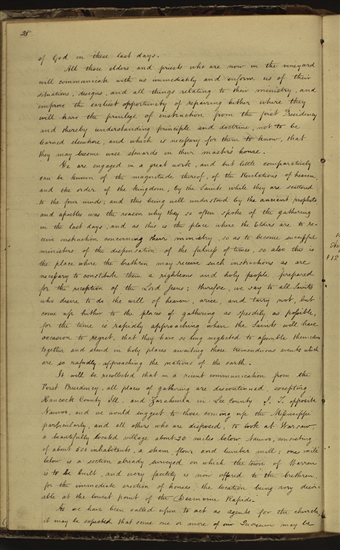 of God in these last days.
All those elders and priests who are now in the vineyard
will communicate with us immediately and inform us of their
situations, designs, and all things relating to their ministry, and
improve the earliest opportunity of repairing hither where they
will have the privilege of instruction from the first Presidency
and thereby understanding principle and doctrine, not to be
learned elsewhere, and which is necessary for them to know, that
they may become wise stewards in their master's house.
We are engaged in a great work, and but little comparatively
can be known of the magnitude thereof, of the Revelations of heaven,
and the order of the kingdom, by the Saints while they are scattered
to the four winds; and this being well understood by the ancient prophets
and apostles was the reason why they so often spoke of the gathering
in the last days, and as this is the place where the Elders are to re-
ceive instruction concerning their ministry, so as to become successful
ministers of the dispensation of the fulness of times, so also this is
the place where the brethren may receive such instructions as are
necessary to constitute them a righteous and holy people, prepared
for the reception of the Lord Jesus; therefore, we say to all Saints
who desire to do the will of heaven, arise, and tarry not, but
come up hither to the places of gathering as speedily as possible,
for the time is rapidly approaching when the Saints will have
occasion to regret, that they have so long neglected to assemble themselves
together and stand in holy places awaiting those tremendous events which
are so rapidly approaching the nations of the earth.
It will be recollected that in a recent communication from the
First Presidency, all places of gathering are discontinued excepting
Hancock County Ill. and Zarahemla in Lee county I. T. opposite
Nauvoo, and we would suggest to those coming up the Mississippi
particularly, and all others who are disposed, to look at Warsaw,
a beautifully located village about 20 miles below Nauvoo, consisting
of about 500 inhabitants a steam flour and lumber mill; one mile
below is a section already surveyed on which the town of Warren
is to be built and every facility is now offered to the brethren,
for the immediate erection of houses the location being very desir-
able at the lowest point of the Desmoine Rapids.
As we have been called upon to act as agents for the church
it may be expected that some one or more of our Quorum may be